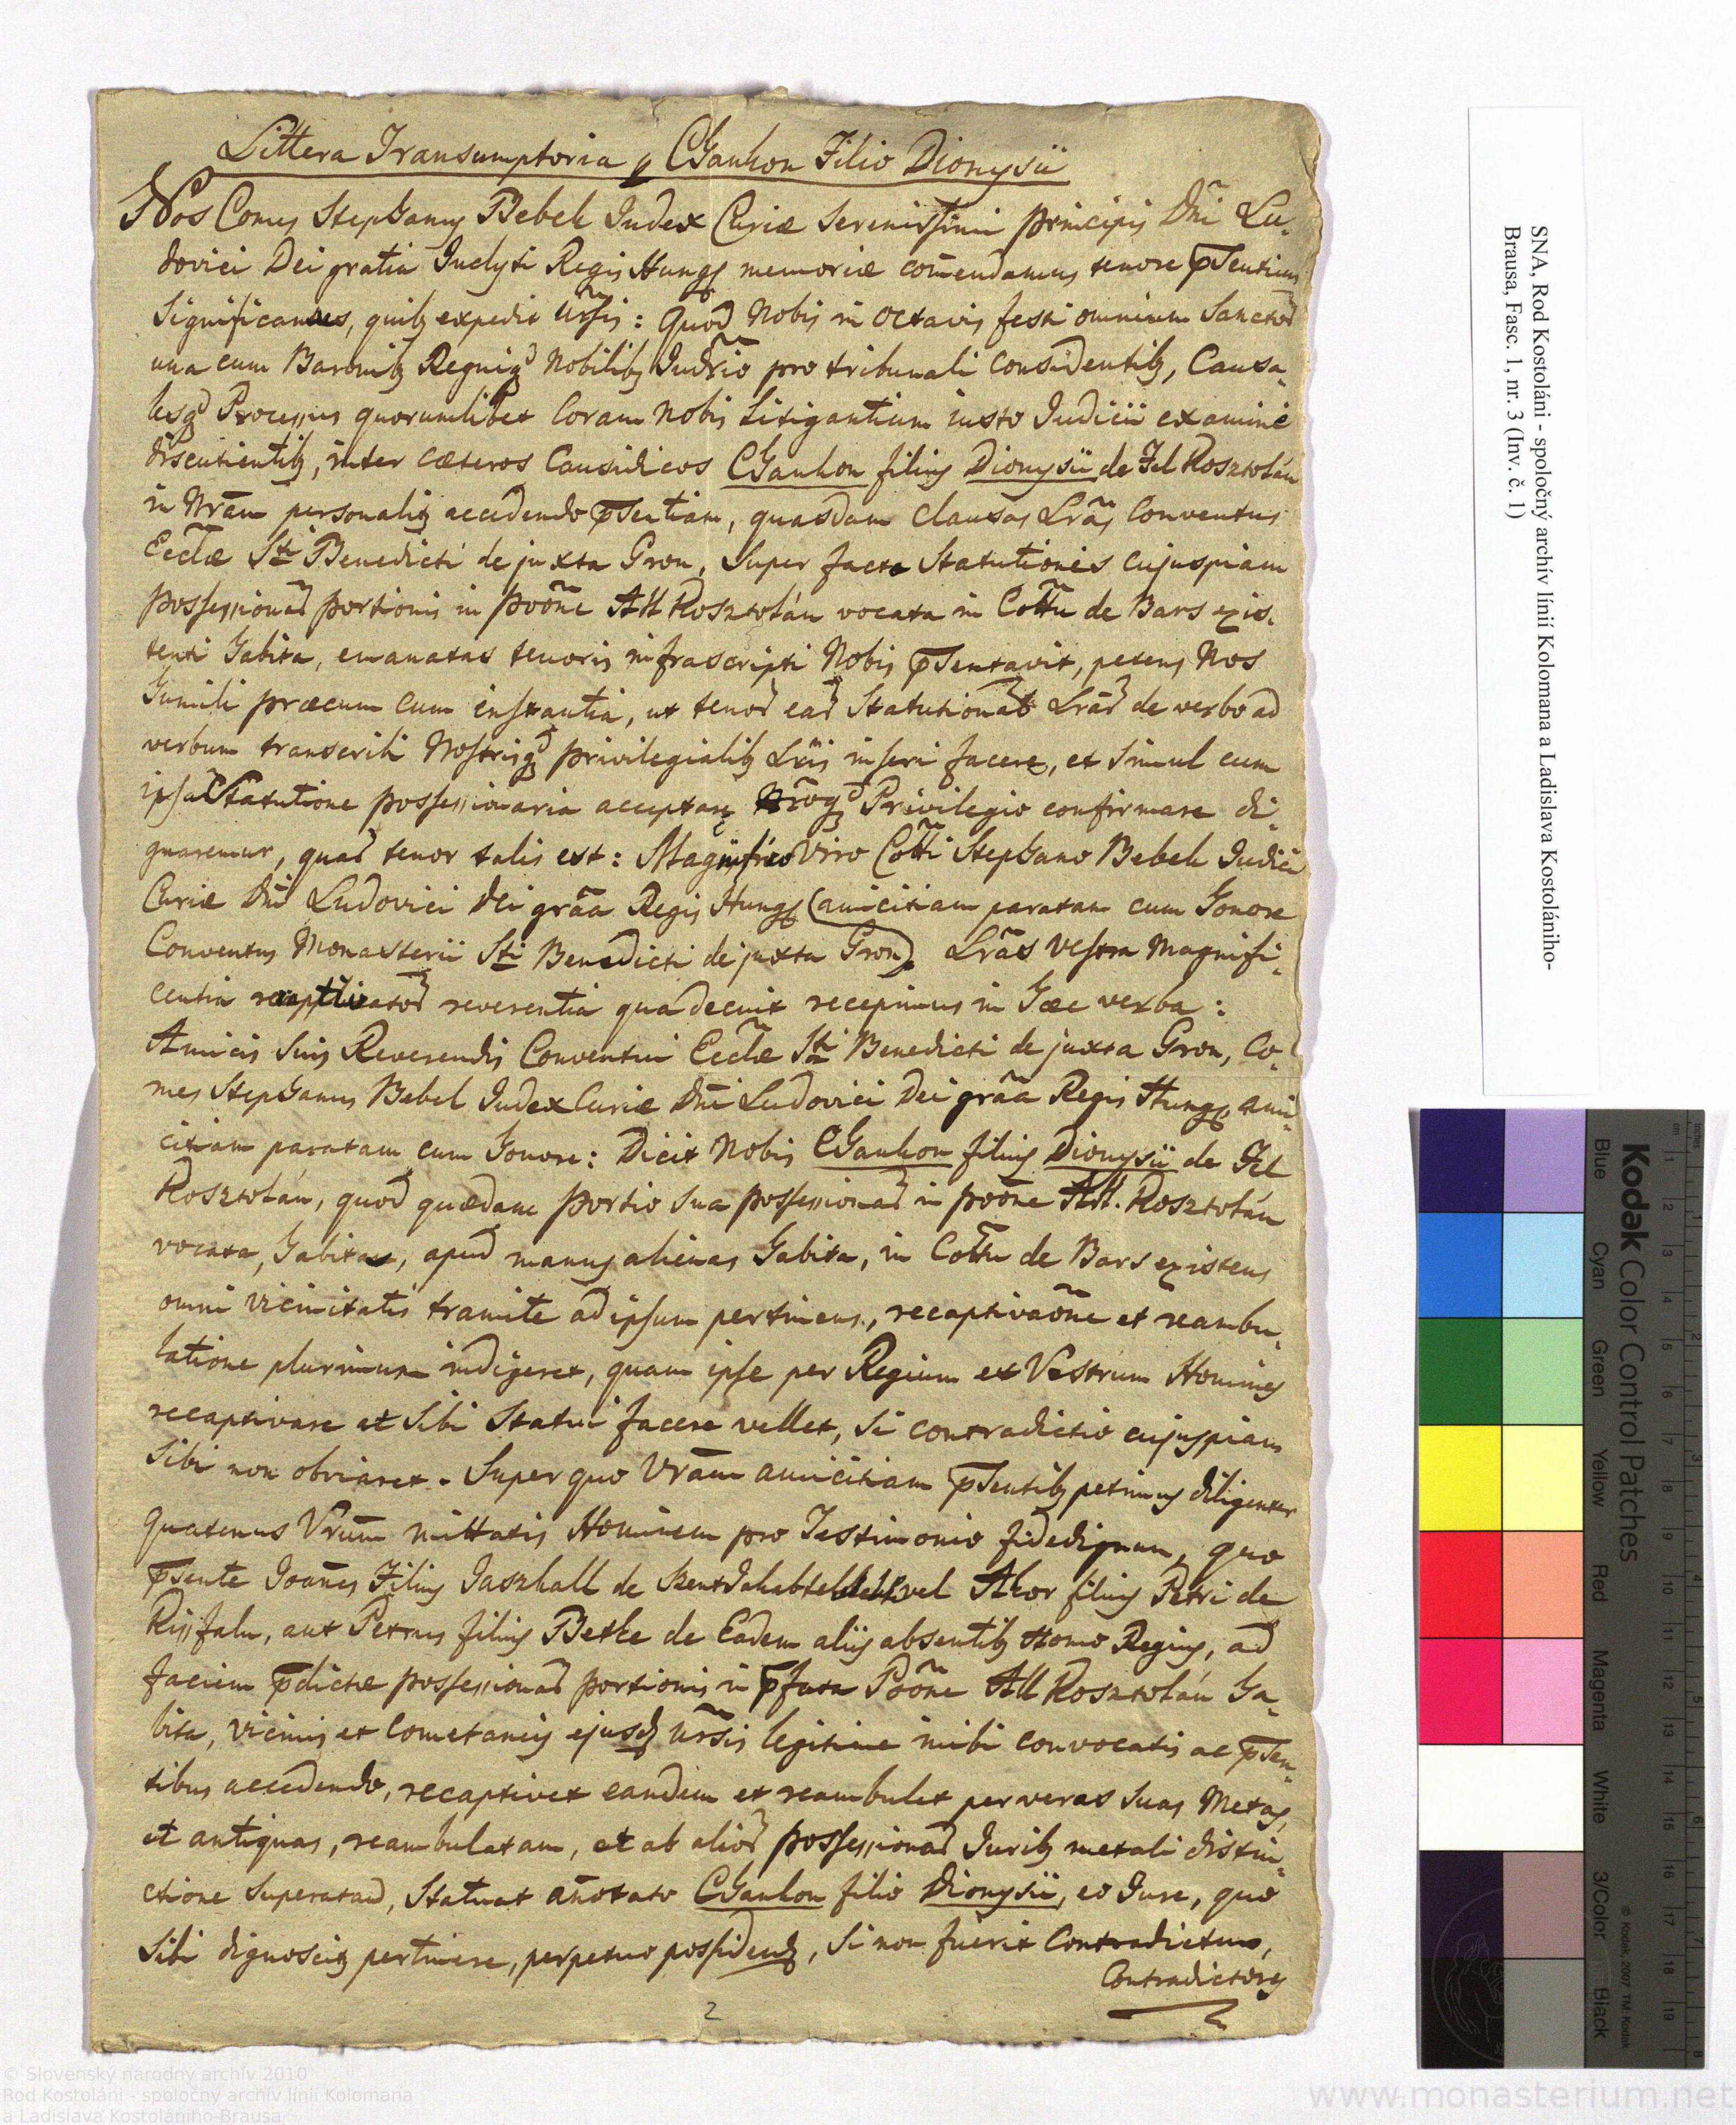 Littera Transumptoria p Chankon Filio Dionysii
Nos Comes Stephanus Bebek Judex Curiæ Serenissimi principis Dni Lu-
dovici Dei gratia Inclyti Regis Hung memoriæ comendamus tenore pSentium
Significantes, quib expedit Ursis: Quod Nobis in Octavis festi omnium Sanctor
una cum Baronib Regniq Nobilib Judrio pro tribunali considentib, Causa-
lesq Processus quorumlibet Coram Nobis Litigantium iusto Judicii examine
discutientib, inter cæteros Causidicos Chankon filius Dionysii de Fel Kosztolán
in Nram personalit accedendo pSentiam, quasdam clausas Lras Conventus
Ecclæ Sti Benedicti de juxta Gron, Super facto Statutionis cujuspiam
possessionar portionis in poone All Kosztolán vocata in Cottu de Bars exis-
tenti habita, emanatas tenoris infrascripti Nobis pSentavit, petens Nos
humili præcum cum instantia, ut tenor ear Statutionar Lrar de verbo ad
verbum transcribi Nostrisq privilegialib Lris inseri facere, et Simul cum
ipsa Statutione possessionaria acceptare Nroq Privilegio confirmare di-
gnaremur, quar tenor talis est: Magnifico Viro Cotti Stephano Bebek Judici
Curiæ Dni Ludovici Dei graa Regis Hung (amicitiam paratam cum honore
Conventus Monasterii Sti Benedicti de juxta Gron). Lras Vestra Magnifi-
centia reverentia qua decuit recepimus in hæc verba:
Amicis Suis Reverendis Conventui Ecclæ Sti Benedicti de juxta Gron, Co-
mes Stephanus Bebek Judex Curiæ Dni Ludovici Dei graa Regis Hung ami-
citiam paratam cum honore: Dicit Nobis Chankon filius Dionysii de Fel
Kosztolán, quod quædam portio Sua possessionar in poone All. Kosztolán
vocata, habita, apud manus alienas habita, in Cottu de Bars existens
omni vicinitatis tramite ad ipsum pertinens, recaptivaone et reambu-
latione plurimum indigeret, quam ipse per Regium et Vestrum Homines
recaptivare et Sibi Statui facere vellet, Si contradictio cujuspiam
Sibi non obviaret. Super quo Vram amicitiam pSentib petimus diligenter
quatenus Vrum mittatis Hominem pro Testimonio fidedignum, quo
pSente Joanes Filius Jaszhall de vel Akor filius Petri de
Kissfalu, aut Petrus filius Betke de Eadem aliis absentib Homo Regius, ad
faciem pdictæ possessionar portionis in pfata Poone All Kosztolán ha-
bita, vicinis et Cometaneis ejusd Ursis legitime inibi convocatis ac pSen-
tibus accedendo, recaptivet eandem et reambulet per veras Suas Metas,
et antiquas, reambulatam, et ab alior possessionar Jurib metali distin-
ctione Superatam, Statuat anotato Chankon filio Dionysii, eo Jure, quo
Sibi dignoscit pertinere, perpetuo possidend, Si non fuerit Contradictum,
Contradictores
2
SNA, Rod Kostoláni - spoločný archív línií Kolomana a Ladislava Kostolániho-
Brausa, Fasc. 1, nr. 3 (Inv. č. 1)
Kodak Color Control Patches
Blue Cyan Green Yellow Red Magenta White 3/Color Black
© Kodak, 2007 TM: Kodak
© Slovenský národný archív 2010
Rod Kostoláni - spoločný archív línií Kolomana
a Ladislava Kostolániho-Brausa
www.monasterium.net